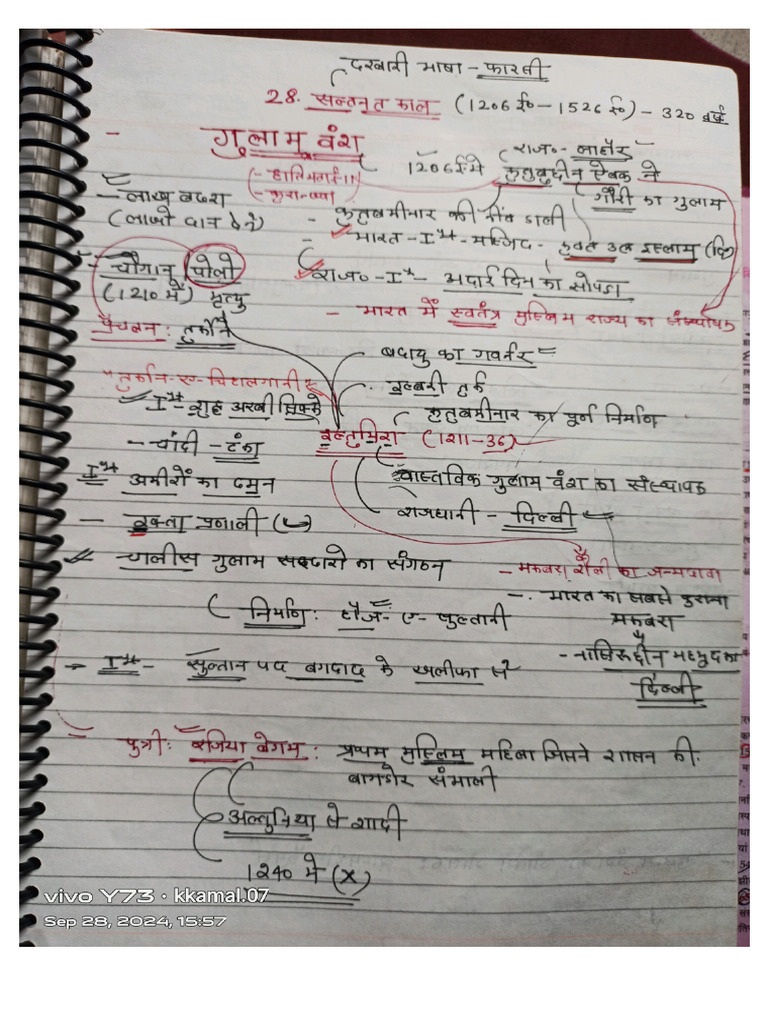 दरबारी भाषा - फारसी
28. सल्तनत काल (1206 ई० - 1526 ई०) - 320 वर्ष
- गुलाम वंश
राज०- लाहौर
1206 ई० में कुतुबुद्दीन ऐबक ने
(- हातिमताई II
- कुरान खां
गौरी का गुलाम
- लाख बख्श
(लाखों दान देने)
- कुतुबमीनार की नींव डाली
- भारत - Iˢᵗ - मस्जिद - कुवत उल इस्लाम (दि)
- चौगान पोलो
(1210 में) मृत्यु
राज० - Iˢᵗ - अढाई दिन का झोपडा
- भारत में स्वतंत्र मुस्लिम राज्य का संस्थापक
प्रचलन : तुर्कों ने
बदायु का गवर्नर
इल्बरी तुर्क
तुर्कान-ए-चिहालगानी
Iˢᵗ - शुद्ध अरबी सिक्के
कुतुबमीनार का पूर्ण निर्माण
- चांदी - टंका
इल्तुमिश (1211-36)
Iˢᵗ अमीरों का दमन
वास्तविक गुलाम वंश का संस्थापक
राजधानी - दिल्ली
- इक्ता प्रणाली
चालीस गुलाम सरदारो का संगठन
- मकबरा शैली का जन्मदाता
-. भारत का सबसे पुराना
मकबरा
( निर्माण : हौज - ए - सुल्तानी
- नासिरूद्दीन महमूद का
दिल्ली
→ Iˢᵗ - सुल्तान पद बगदाद के खलीफा से
पुत्री : रजिया बेगम : प्रथम मुस्लिम महिला जिसने शासन की
बागडोर संभाली
अल्तुनिया से शादी
1240 में (x)
vivo Y73 · kkamal.07
Sep 28, 2024, 15:57